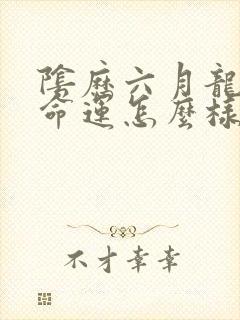 陰歷六月龍
命運怎麼樣
不才幸幸